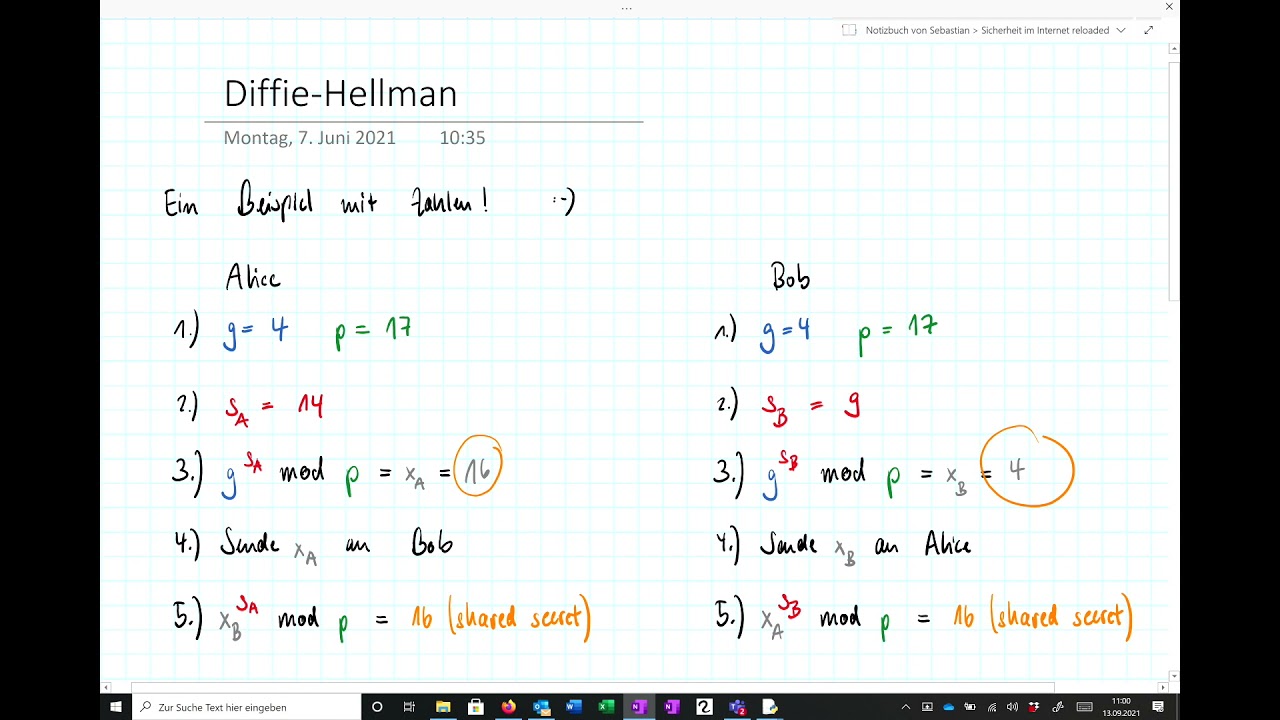 ...
Notizbuch von Sebastian > Sicherheit im Internet reloaded
Diffie-Hellman
Montag, 7. Juni 2021 10:35
Ein Beispiel mit Zahlen! :-)
Alice Bob
1.) g = 4 p = 17 1.) g = 4 p = 17
2.) s_A = 14 2.) s_B = 9
3.) g^s_A mod p = x_A = 16 3.) g^s_B mod p = x_B = 4
4.) Sende x_A an Bob 4.) Sende x_B an Alice
5.) x_B^s_A mod p = 16 (shared secret) 5.) x_A^s_B mod p = 16 (shared secret)
Zur Suche Text hier eingeben 11:00
13.09.2021